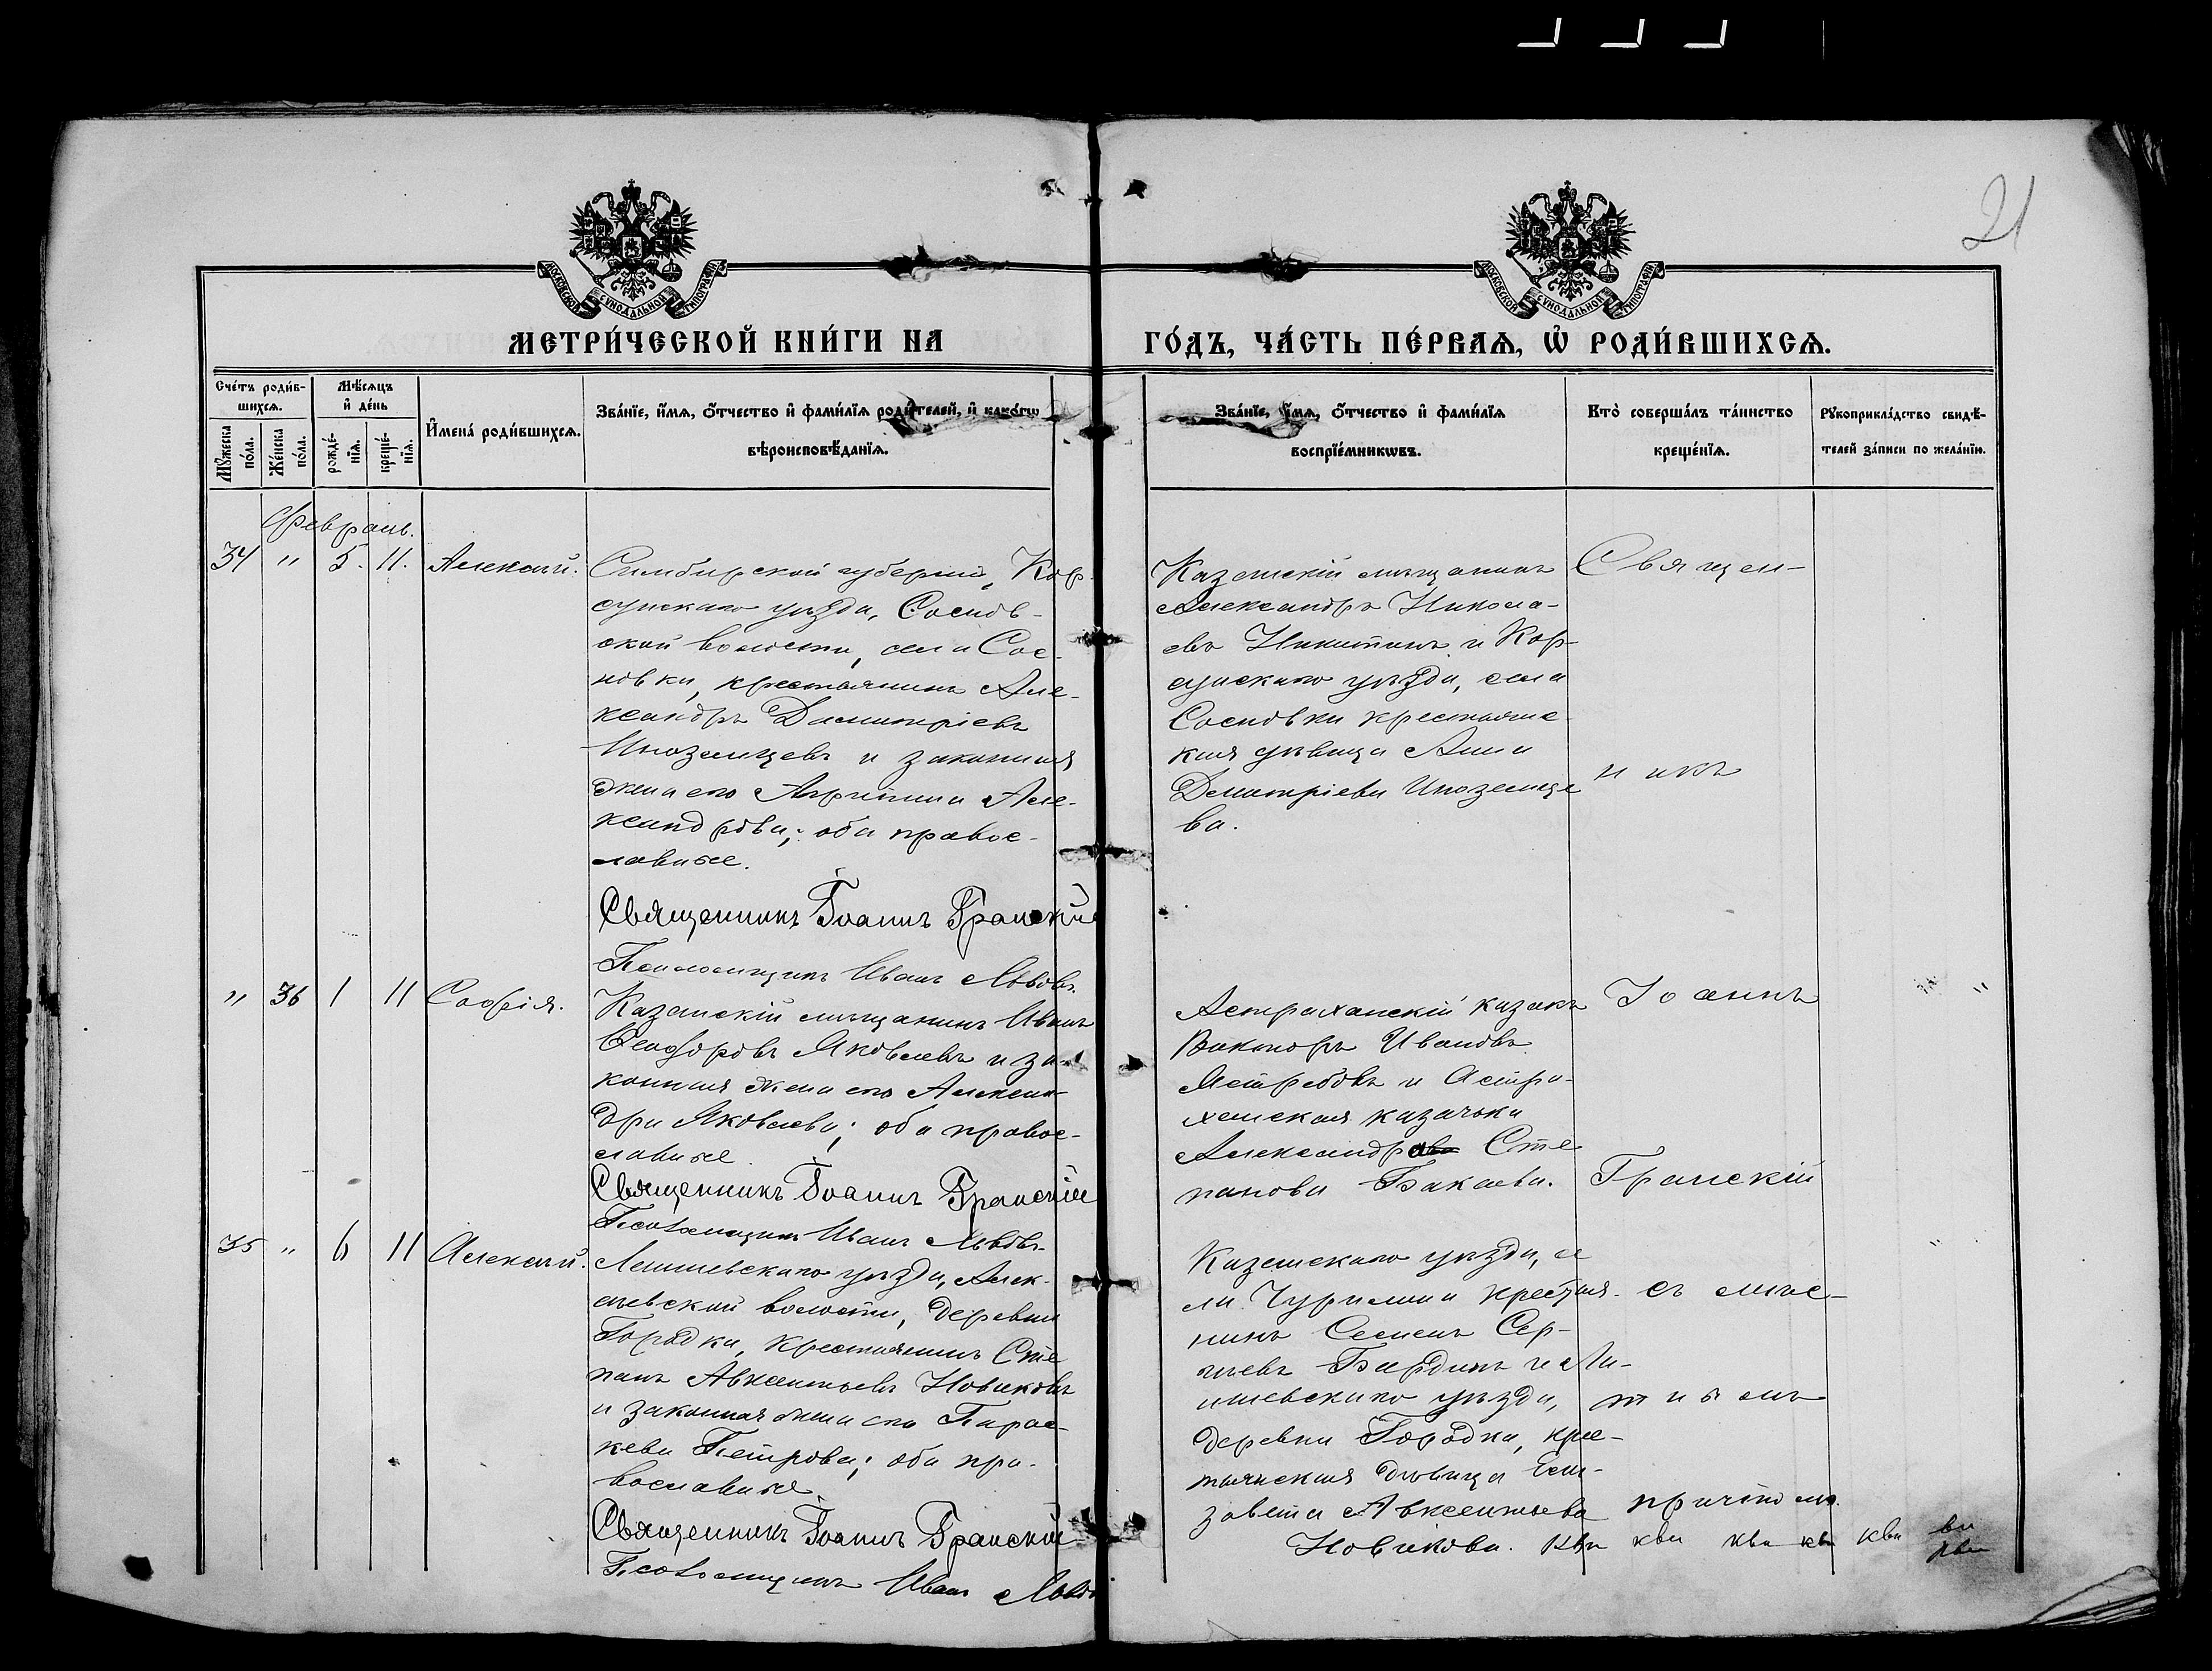 21
МОСКОВСКОЙ СѴНОДАЛЬНОЙ ТИПОГРАФІИ
МОСКОВСКОЙ СѴНОДАЛЬНОЙ ТИПОГРАФІИ
МЕТРИ́ЧЕСКОЙ КНИ́ГИ НА
ГО́ДЪ, ЧА́СТЬ ПЕ́РВАѦ, Ѡ҆ РОДИ́ВШИХСѦ.
Сче́тъ роди́в-
шихсѧ.
Мꙋ́жеска по́ла.
Же́нска по́ла.
Мѣ́сѧцъ
и҆ де́нь
рожде́-
нїѧ.
креще́-
нїѧ.
И҆мена̀ роди́вшихсѧ.
Зва́нїе, и҆́мѧ, ѻ҆́тчество и҆ фами́лїѧ роди́телей, и҆ како́гѡ
вѣроисповѣ́данїѧ.
Зва́нїе, и҆́мѧ, ѻ҆́тчество и҆ фами́лїѧ
воспрїе́мникѡвъ.
Кто̀ соверша́лъ та́инство
креще́нїѧ.
Рꙋкоприкла́дство свидѣ́-
телей за́писи по жела́нїю.
Февраль.
34 " 5. 11. Алексѣй.
Симбирской губерніи, Кор-
сунскаго уѣзда, Соснов-
ской волости, села Сос-
новки, крестьянинъ Але-
ксандръ Димитріевъ
Иноземцевъ и законная
жена его Агрипина Але-
ксандрова; оба правос-
лавные.
Священникъ Іоаннъ Гранскій
Псаломщикъ Иванъ Львовъ.
Казанскій мѣщанинъ
Александръ Никола-
евъ Никитинъ и Кор-
сунскаго уѣзда, села
Сосновки крестьянс-
кая дѣвица Анна
Димитріева Иноземце
ва.
Священ-
никъ
" 36 1 11 Софія.
Казанскій мѣщанинъ Иванъ
Ѳеодоровъ Яковлевъ и за-
конная жена его Алексан-
дра Яковлева; оба правос-
лавные.
Священникъ Іоаннъ Гранскій
Псаломщикъ Иванъ Львовъ.
Астраханскій казакъ
Викторъ Ивановъ
Ястребовъ и Астра-
ханская казачка
Александра Сте
панова Бакаева.
Іоаннъ
Гранскій
"
35 " 6 11 Алексѣй.
Лаишевскаго уѣзда, Алек-
сѣевской волости, деревни
Городки, крестьянинъ Сте
панъ Авксентьевъ Новиковъ
и законная жена его Парас-
кева Петрова; оба пра-
вославные.
Священникъ Іоаннъ Гранскій
Псаломщикъ Иванъ Львовъ
Казанскаго уѣзда, се
ла Чурилина крестья-
нинъ Семенъ Сер-
гѣевъ Бардинъ и Ла-
ишевскаго уѣзда,
деревни Городки, крес-
тьянская дѣвица Ели-
завета Авксентьева
Новикова.
съ мѣс-
тнымъ
причтомъ.
"